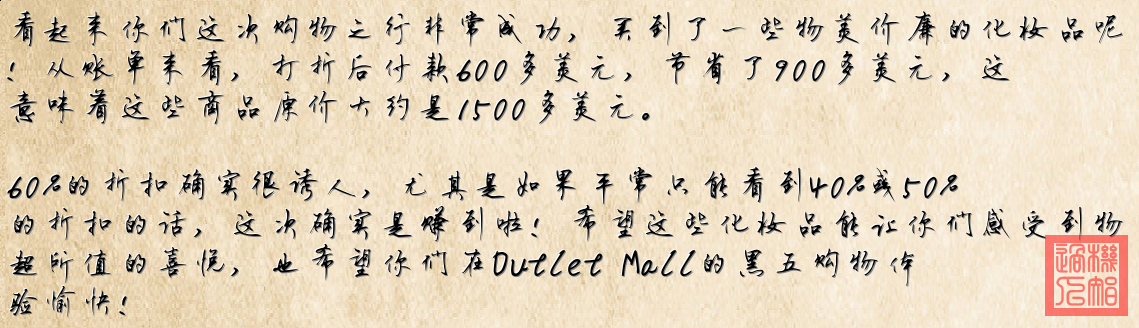 看起来你们这次购物之行非常成功，买到了一些物美价廉的化妆品呢
！从账单来看，打折后付款600多美元，节省了900多美元，这
意味着这些商品原价大约是1500多美元。
60%的折扣确实很诱人，尤其是如果平常只能看到40%或50%
的折扣的话，这次确实是赚到啦！希望这些化妆品能让你们感受到物
超所值的喜悦，也希望你们在Outlet Mall的黑五购物体
验愉快！